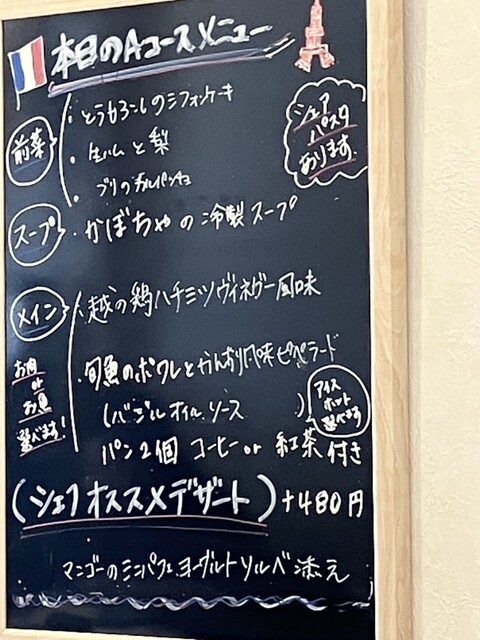 本日のAコースメニュー
シェア
パスタ
あります
前菜
・とうもろこしのシフォンケーキ
・生ハムと梨
・ブリのカルパッチョ
スープ
かぼちゃの冷製スープ
メイン
・越の鶏ハチミツヴィネガー風味
お肉
or
お魚
選べます!
・旬魚のポワレとかんずり風味ピペラード
(バジルオイルソース)
アイス
ホット
選べます
パン2個 コーヒー or 紅茶 付き
(シェフオススメデザート)+480円
マンゴーのミニパフェ ヨーグルトソルベ添え